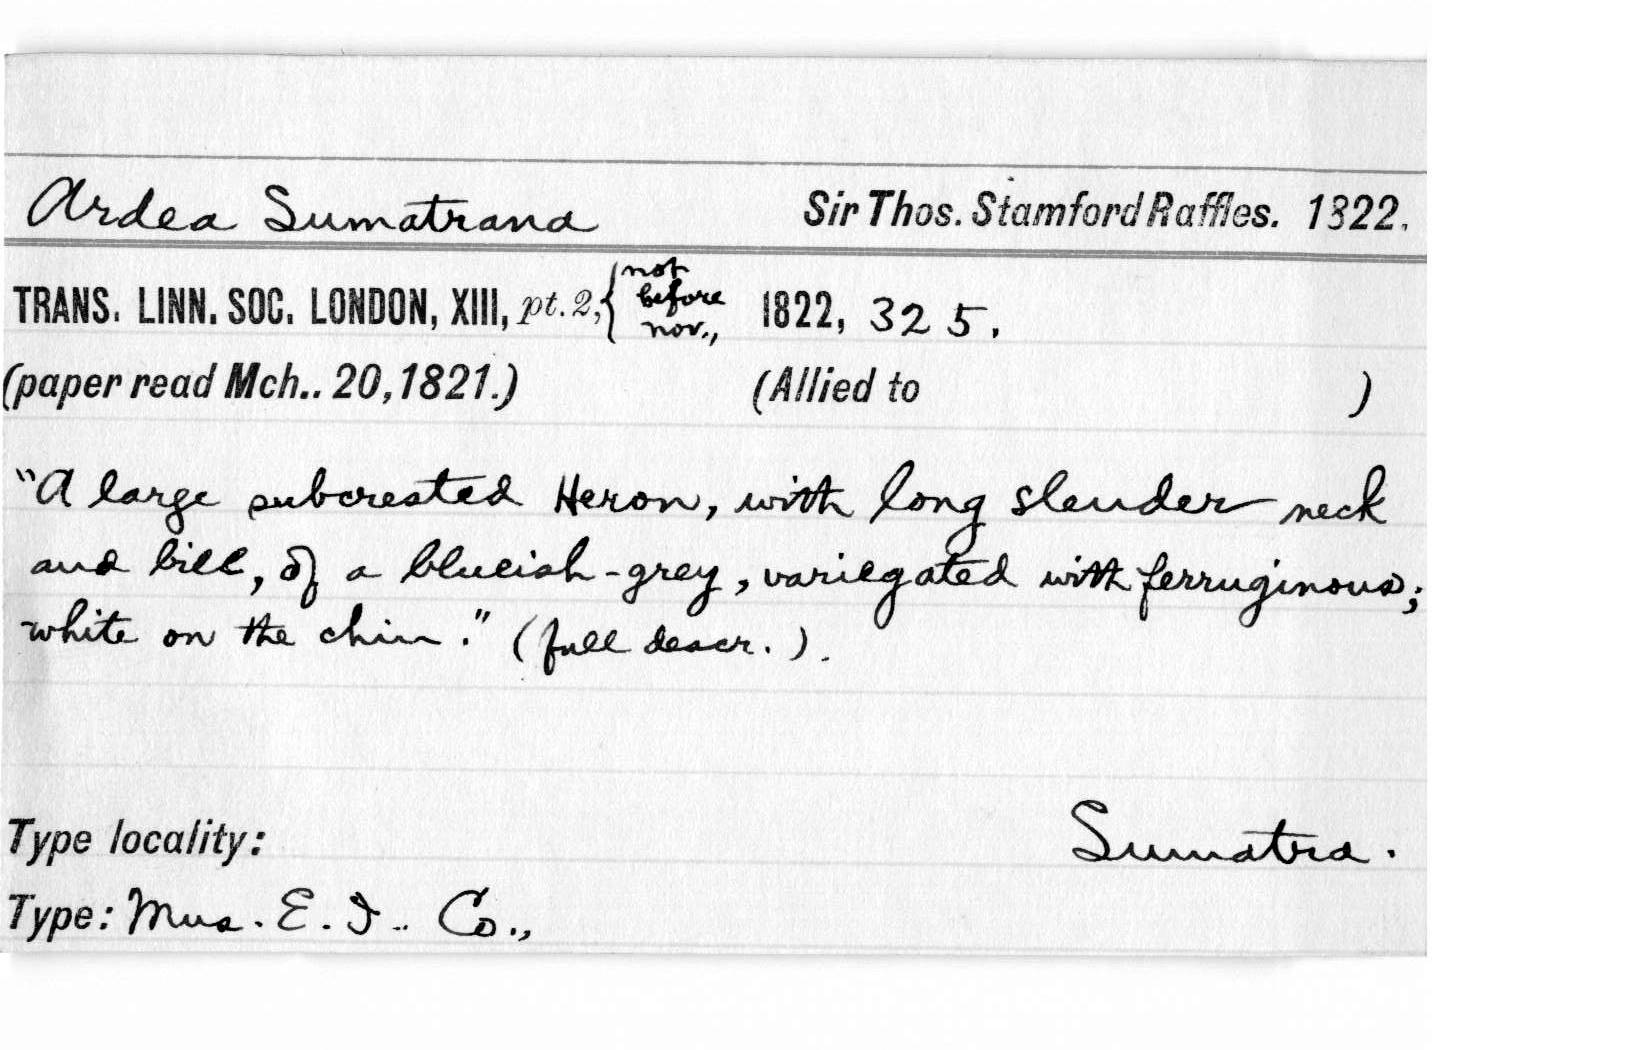 Ardea Sumatrana Sir Thos. Stamford Raffles. 1822.
TRANS. LINN. SOC. LONDON, XIII, pt. 2, { not before nov., 1822, 325.
(paper read Mch.. 20, 1821.) (Allied to )
"A large subcrested Heron, with long slender neck
and bill, of a blueish-grey, variegated with ferruginous;
white on the chin." (full descr.).
Type locality: Sumatra.
Type: Mus. E. I.. Co.,